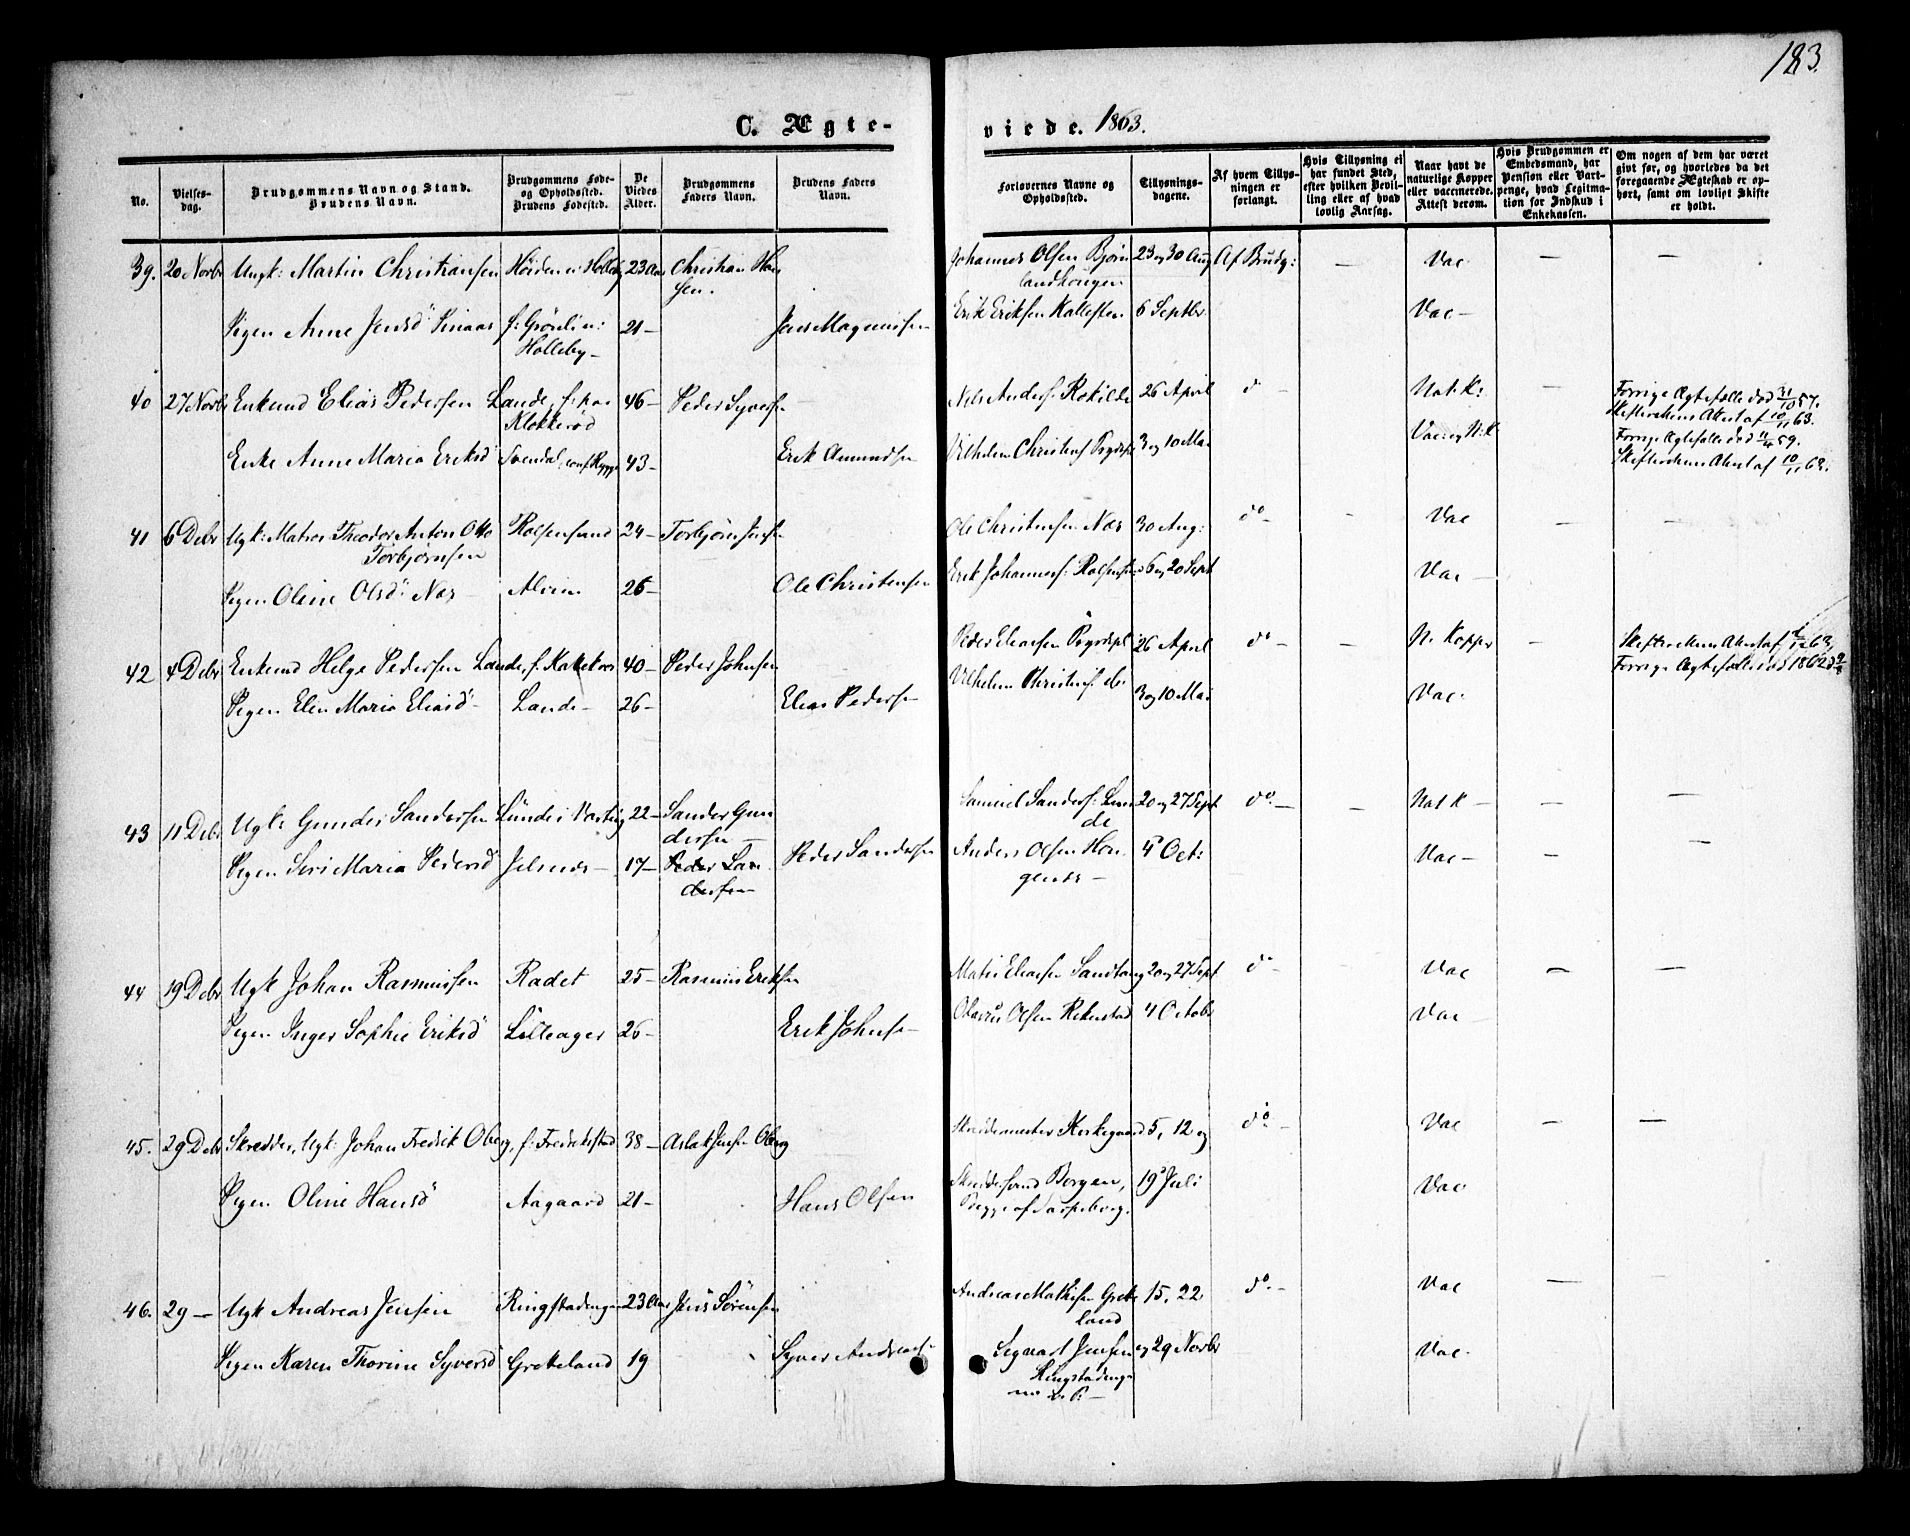 183.
C. Ægte-
viede. 1863.
No.
Vielses-
dag.
Brudgommens Navn og Stand.
Brudens Navn.
Brudgommens Føde-
og Opholdssted.
Brudens Fødested.
De
Viedes
Alder.
Brudgommens
Faders Navn.
Brudens Faders
Navn.
Forlovernes Navne og
Opholdssted.
Tillysnings-
dagene.
Af hvem Tillys-
ningen er
forlangt.
Hvis Tillysning ei
har fundet Sted,
efter hvilken Bevil-
ling eller af hvad
lovlig Aarsag.
Naar havt de
naturlige Kopper
eller vaccinerede.
Attest derom.
Hvis Brudgommen er
Embedsmand, har
Pension eller Vart-
penge, hvad Legitma-
tion for Indskud i
Enkekassen.
Om nogen af dem har været
givt før, og hvorledes da det
foregaaende Ægteskab er op-
hørt, samt om lovligt Skifte
er holdt.
39. 20 Novbr Ungk: Martin Christiansen Høiden i Holleby 23 Aar Christian Han
sen.
Johannes Olsen Bjørn 23 og 30 Aug Af Brudg: — Vac — —
landhougen
Pigen Anne Jensd f: Grønli i: 21 — Jens Magnussen
Holleby —
Erik Eriksen Kallesten 6 Septbr Vac —
40 27 Novbr Enkemd Elias Pedersen Lande, f: paa 46 — Peder Syvers
Klokkerød
Nels Anders Rokilde 26 April do — Nat. K: — Forrige Ægtefælle død 31/10 57.
Skifterettens Attest af 10/11 63.
Enke Anne Maria Eriksd Svendal, conf Rygge 43 — Erik Amundsen
Vilhelm Christens 3 og 10 Mai Vac: og N: K Forrige Ægtefælle død 11/4 59.
Skifterettens Attest af 10/11 63.
41 6 Debr Ugk: Matros Theodor Anton Otto Roelsensand 24 — Torbjørn Jens
Torbjørnsen
Ole Christensen Næs 30 Aug: do — Vac — —
Pigen Oline Olsd Næs Alvim 26 — Ole Christensen
Erik Johannes: 6 og 20 Sept Vac —
42 4 Debr Enkemd Helge Pedersen Lande, f: 40 — Peder Johnsen
Peder Eliassen 26 April do — — N. Kopper — Skifterettens Attest af
Forrige Ægtefælle død 1862
Pigen Elen Maria Eliasd Lande — 26 — Elias Peders
Vilhelm Christens do 3 og 10 Mai Vac.
43 11 Debr Ugk: Gunder Sandersen Lunde i Varteig 22 — Sander Gun
dersen —
Samuel Sanders: Lun 20 og 27 Sept do — — Nat K — — —
de
Pigen Siri Maria Pedersd Jelsnes — 17 — Peder San Peder Sandersen
dersen —
Anders Olsen Hou 4 Oct: Vac — —
genæs —
44 19 Debr Ugk Johan Rasmussen Radet 25 — Rasmus Eriksen
Mathis Eliassen Sandtang 20 og 27 Sept do — Vac — —
Pigen Inger Sophie Eriksd Lilleager 26 — Erik Johns
Olavus Olsen Rekustad 4 October Vac —
45. 29 Debr Skrædder, Ugk: Johan Fredrik Oberg, f: Fredrikstad 38 — Aslak Jensen Oberg
Skreddermester Kirkegaard 5, 12 og do — Vac — —
Pigen Oline Hansd Aagaard 21 — Hans Olsen
Skreddersvend Borgen, 19 Juli Vac
Begge af Sarpsborg.
46. 29 — Ugk Andreas Jensen Ringstadengen 23 Aar Jens Sørensen
Andreas Mathisen Greke 15, 22 do — Vac — —
land
Pigen Karen Thorine Syversd Grekeland 19 Syver Andreas
Sigvart Jensen og 29 Novbr Vac.
Ringstadenge